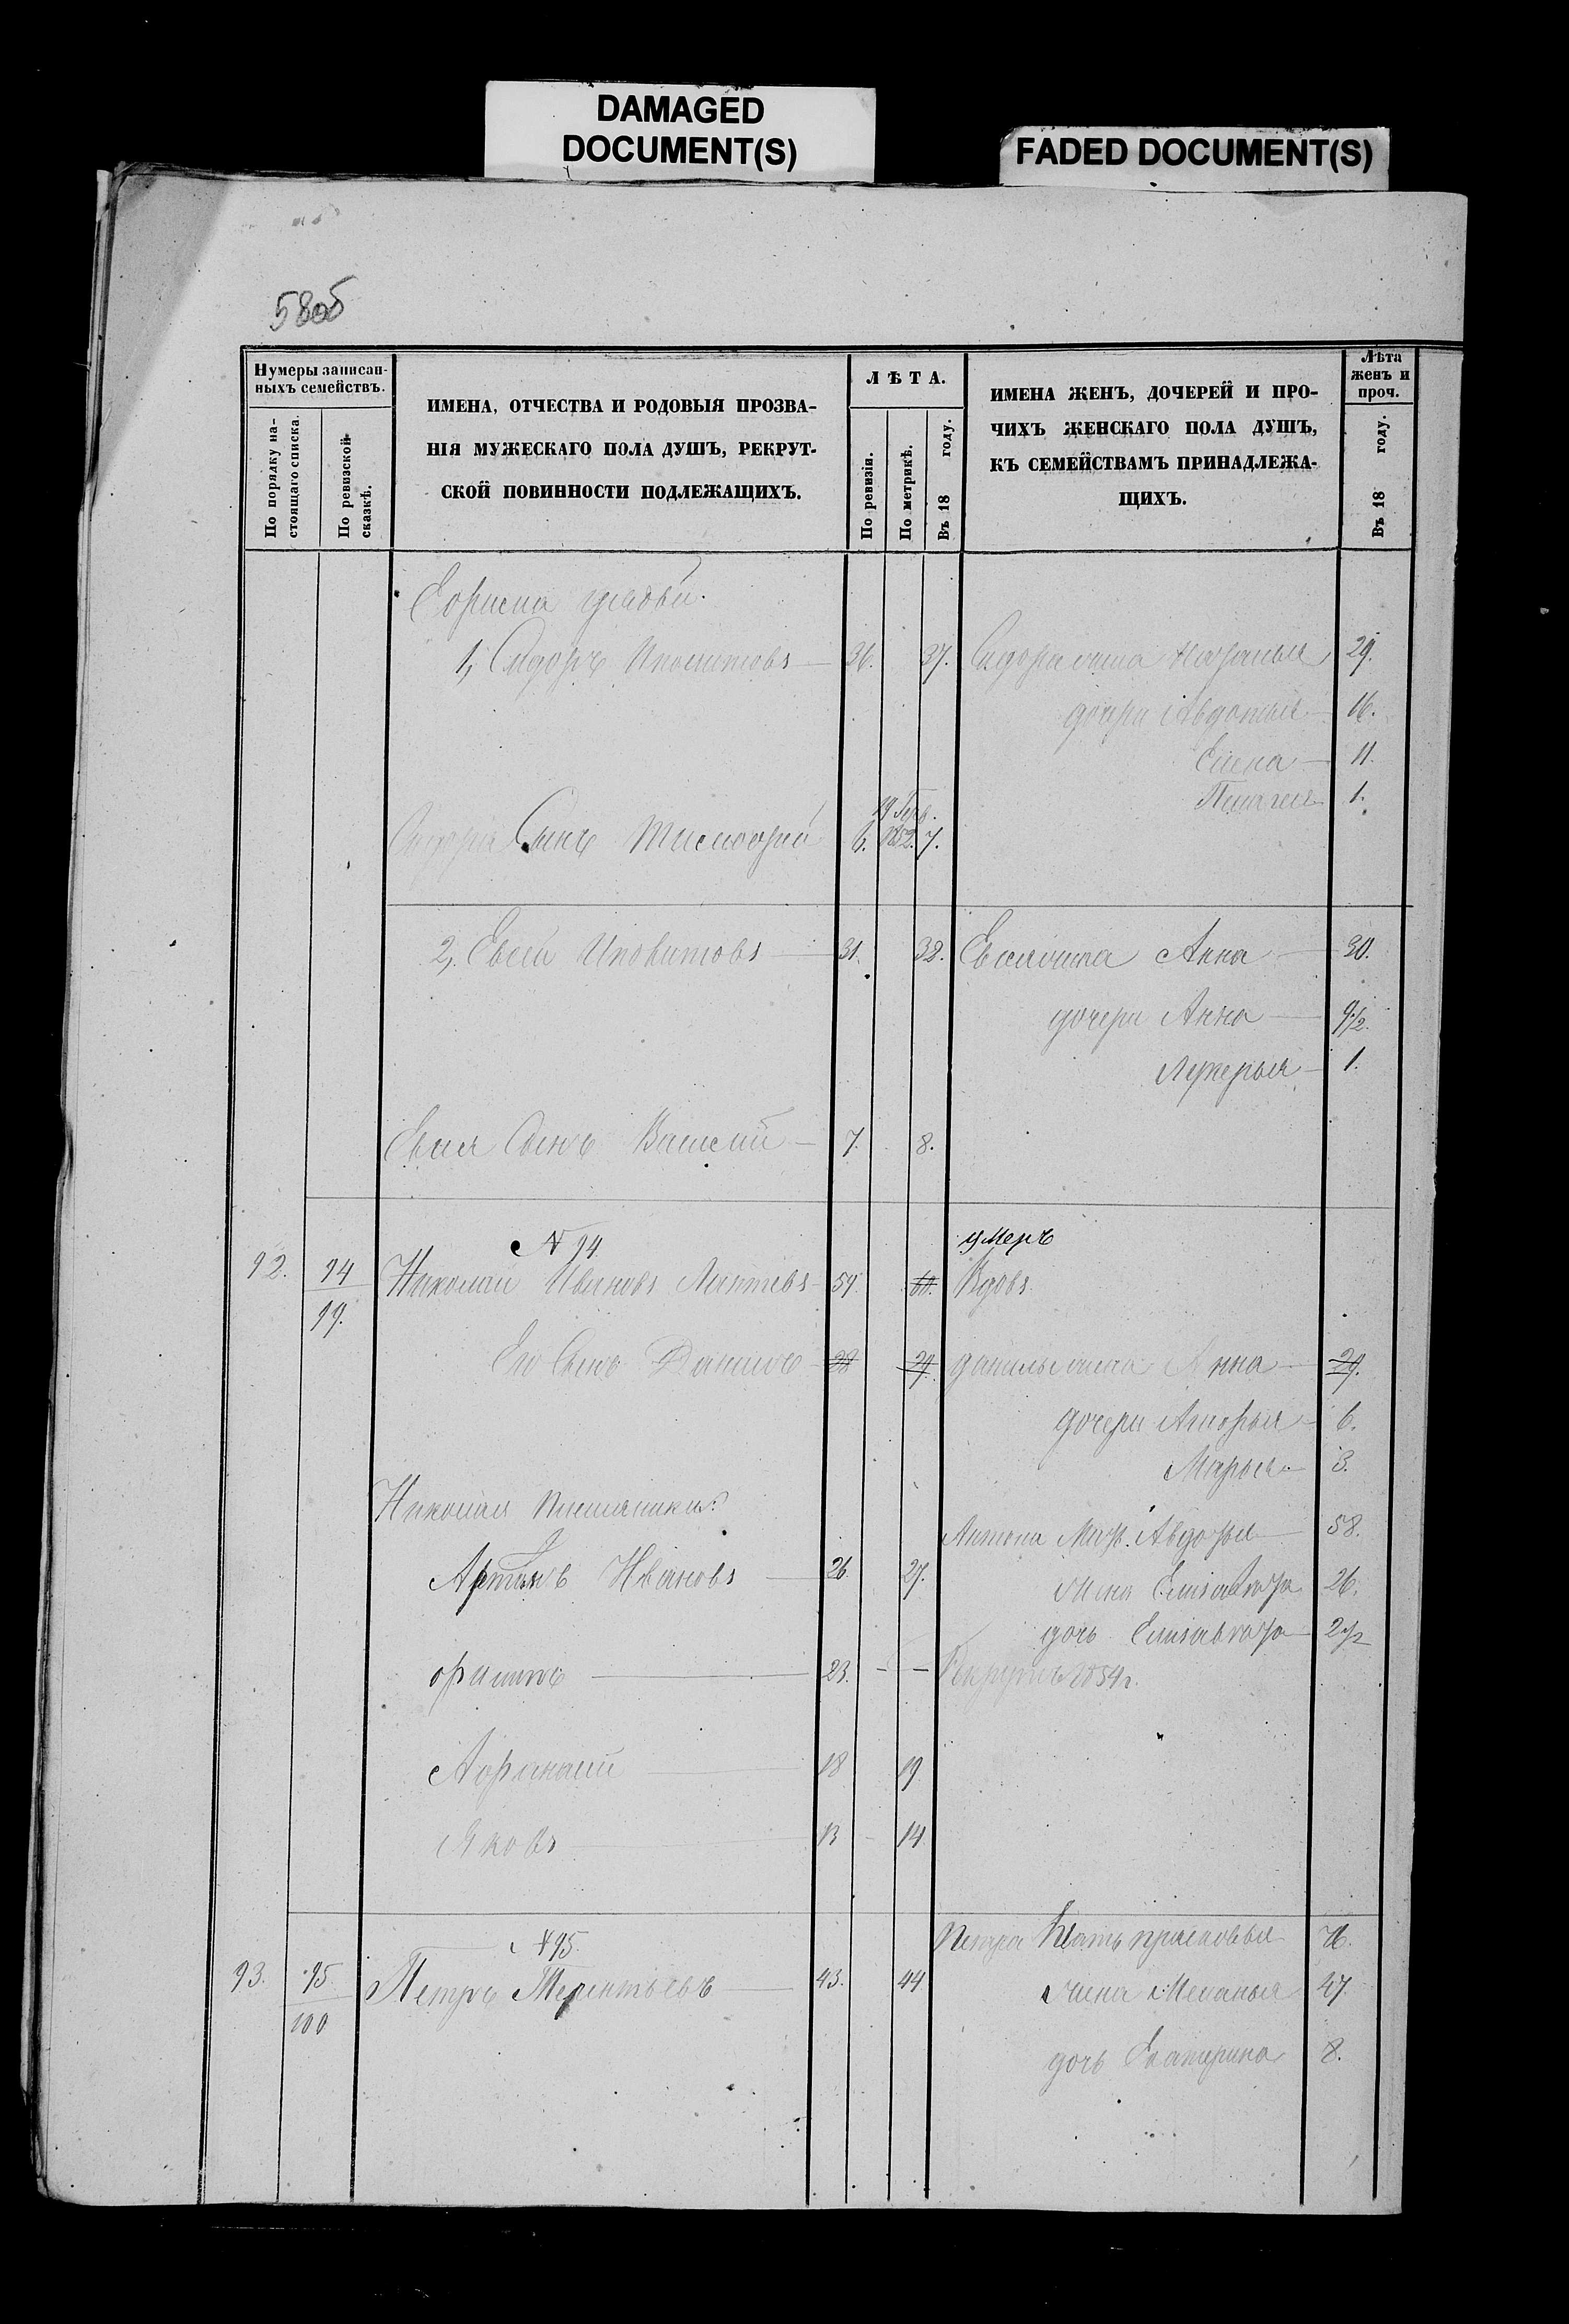 DAMAGED
DOCUMENT(S)
FADED DOCUMENT(S)
58об
Нумеры записан-
ныхъ семействъ.
По порядку на-
стоящаго списка.
По ревизской
сказкѣ.
ИМЕНА, ОТЧЕСТВА И РОДОВЫЯ ПРОЗВА-
НІЯ МУЖЕСКАГО ПОЛА ДУШЪ, РЕКРУТ-
СКОЙ ПОВИННОСТИ ПОДЛЕЖАЩИХЪ.
ЛѢТА.
По ревизіи.
По метрикѣ.
Въ 18 году.
ИМЕНА ЖЕНЪ, ДОЧЕРЕЙ И ПРО-
ЧИХЪ ЖЕНСКАГО ПОЛА ДУШЪ,
КЪ СЕМЕЙСТВАМЪ ПРИНАДЛЕЖА-
ЩИХЪ.
Лѣта
женъ и
проч.
Въ 18 году.
1, Сидоръ 36. 37. Сидора жена 29.
дочери Авдотья 16.
Елена 11.
Пелагея 1.
Сидора Сынъ Тимофей 6. 19 1852. 7.
2, Евсей 31. 32. Евсея жена Анна 30.
дочери Анна 9 1/2.
Лукерья 1.
Евсея Сынъ Василий 7. 8.
умеръ
N 94
92. 94 Николай Ивановъ Лаптевъ 59. 60. Вдовъ
99.
Его Сынъ Данило 28 29. Данилы жена Анна 29.
дочери 6.
Марья 3.
Николая племянники:
Антона Мать Авдотья 58.
Антонъ Ивановъ 26. 27. жена Елисавета 26.
дочь Елисавета 2 1/2
23. — — Рекрутъ 1854 г.
Афанасий 18 19
Яковъ 13 14
N 95.
Петра Мать Прасковья 76.
93. 95. Петръ Терентьевъ 43. 44 жена Меланья 47.
100
дочь Екатерина 8.